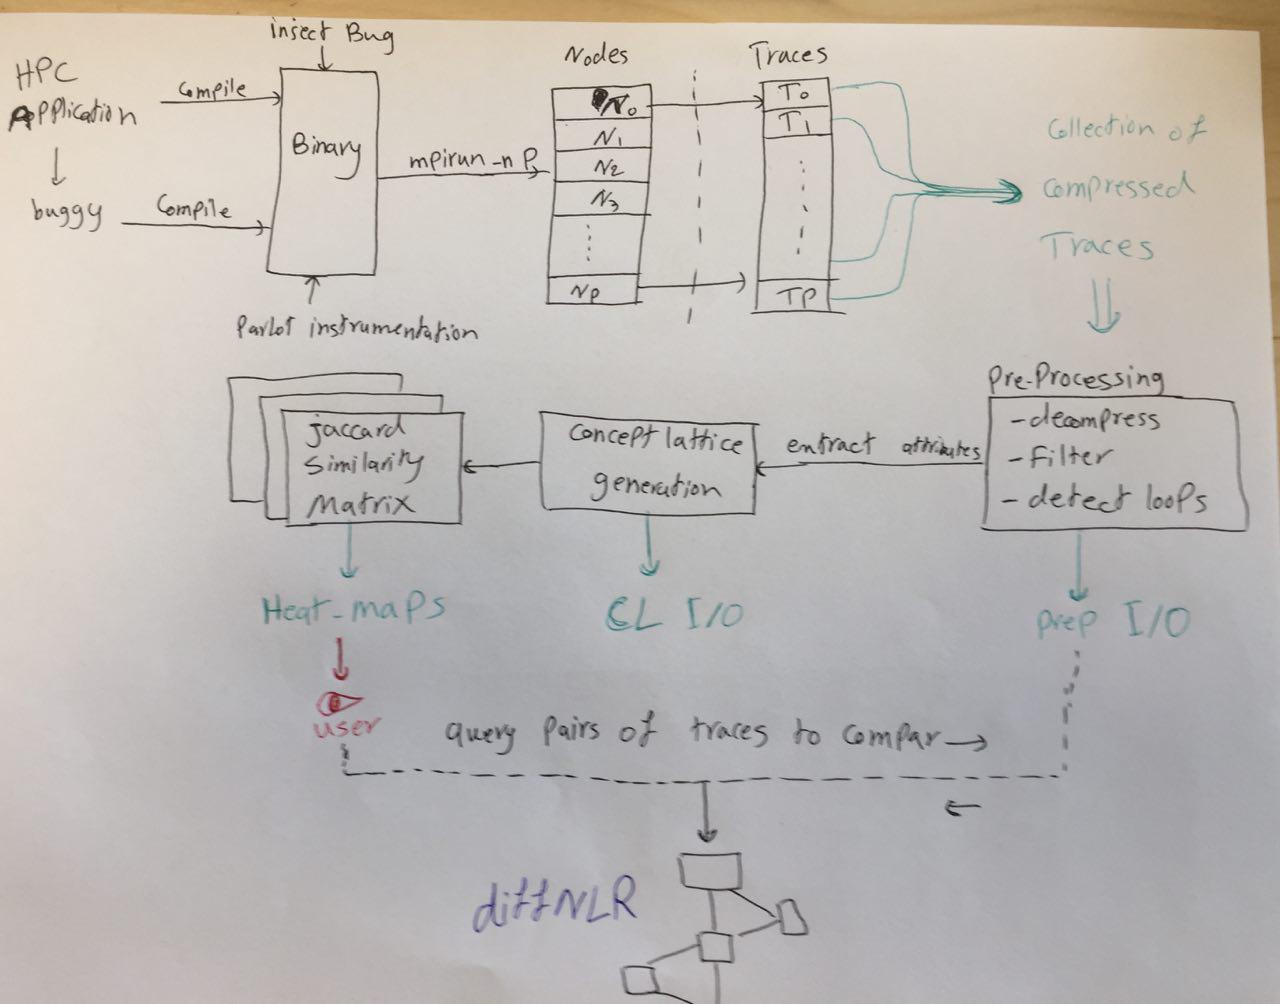 insect Bug
HPC
Application
Compile
Binary
buggy
Compile
Parlot instrumentation
mpirun -n P
Nodes
N0
N1
N2
N3
NP
Traces
T0
T1
TP
Collection of
Compressed
Traces
Pre-Processing
- decompress
- Filter
- detect loops
entract attributes
Concept lattice
generation
jaccard
Similarity
Matrix
Heat-maps
CL I/O
prep I/O
user
query pairs of traces to compar
diffNLR